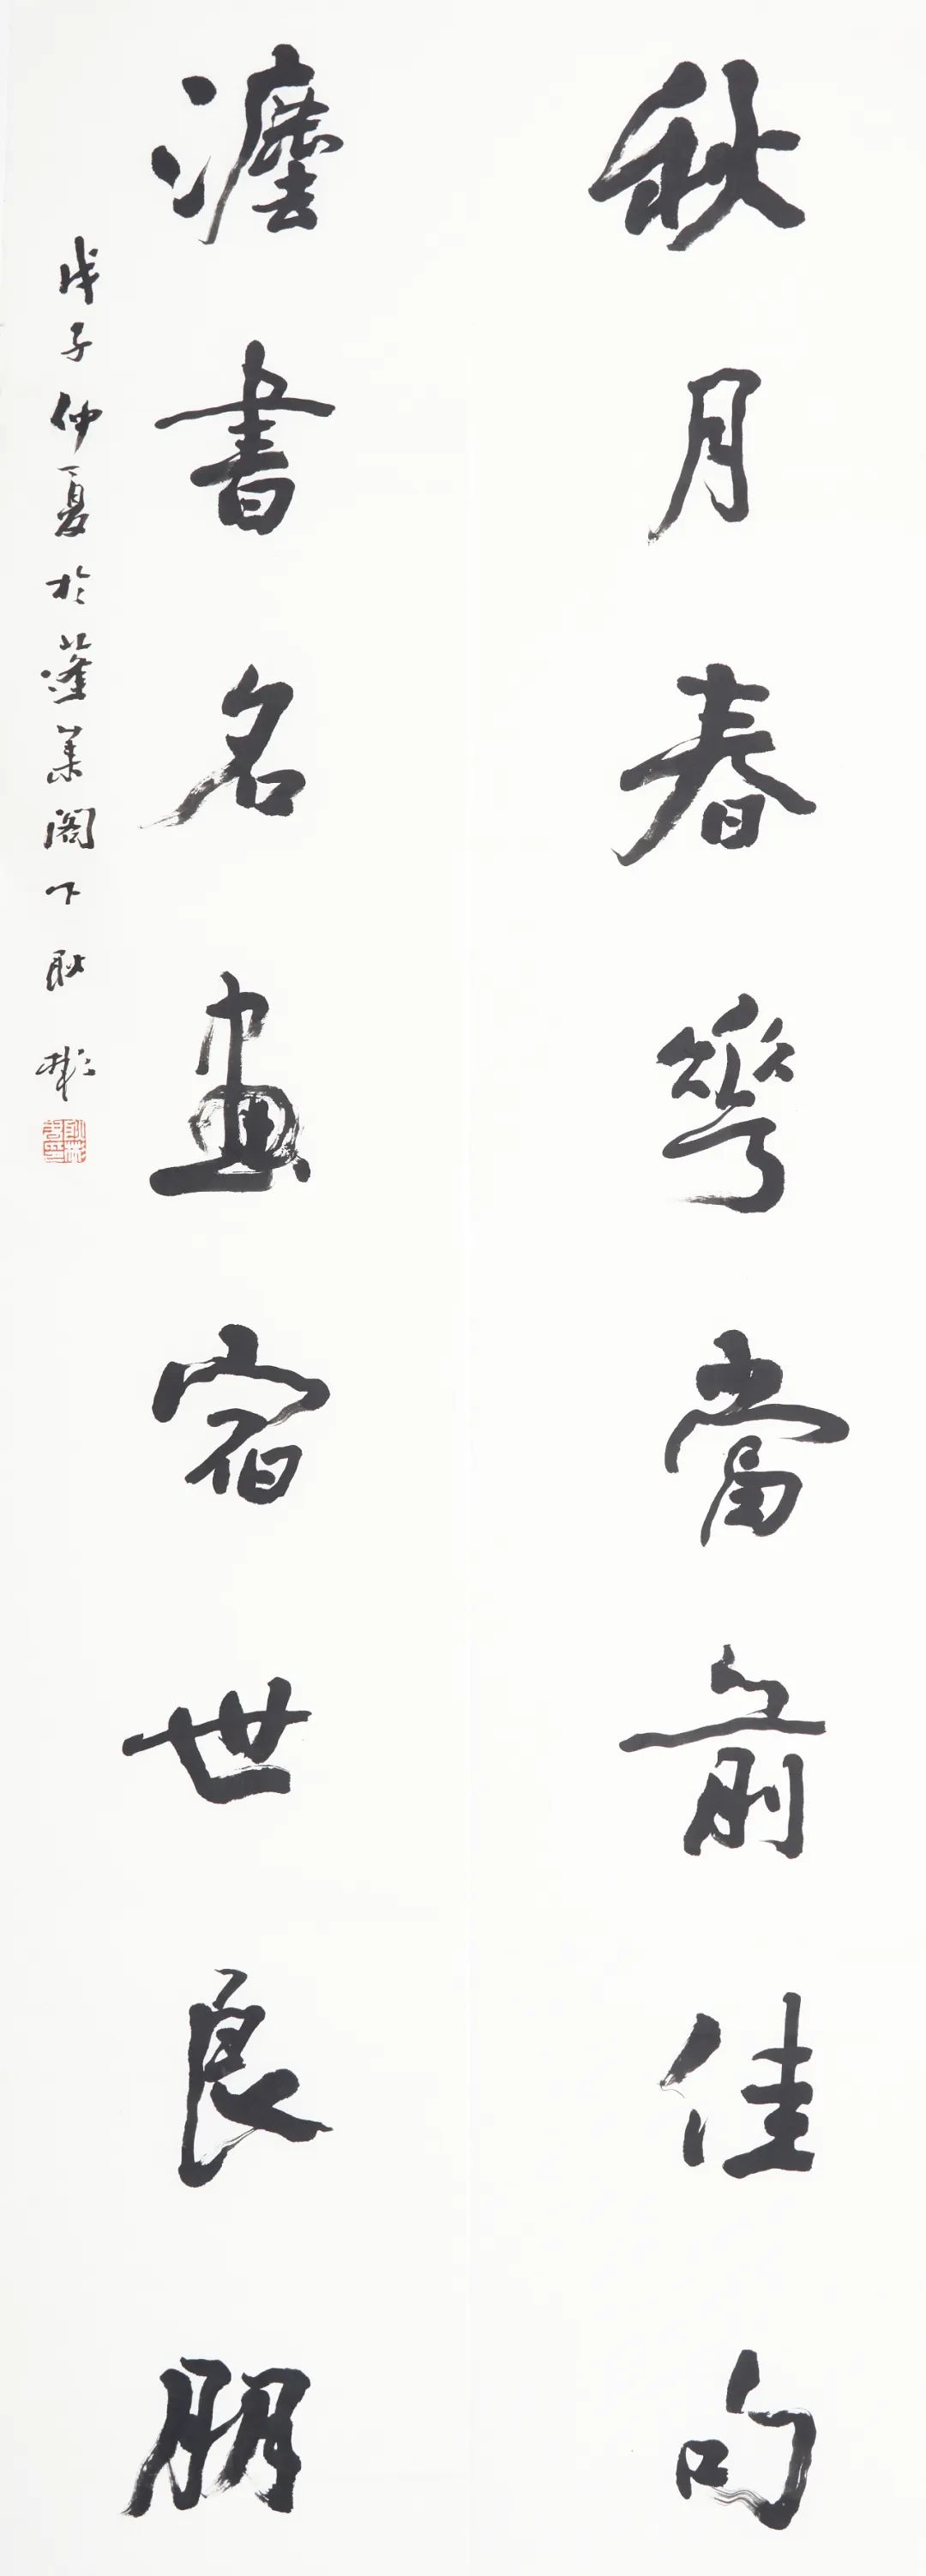 秋月春華當前佳句
灋書名畫宿世良朋
戊子仲夏於蓬萊閣下耿彬